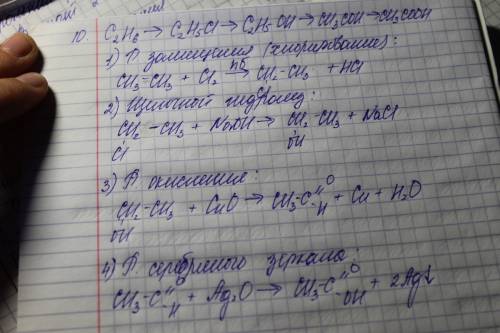 10. C₂H₆ → C₂H₅Cl → C₂H₅OH → CH₃COH → CH₃COOH
1) Р. замещения (хлорирование):
CH₃-CH₃ + Cl₂ →(hδ) CH₂-CH₃ + HCl
Cl
2) Щелочной гидролиз:
CH₂-CH₃ + NaOH → CH₂-CH₃ + NaCl
Cl OH
3) Р. окисления:
CH₂-CH₃ + CuO → CH₃-C(=O)-H + Cu + H₂O
OH
4) Р. серебряного зеркала:
CH₃-C(=O)-H + Ag₂O → CH₃-C(=O)-OH + 2Ag↓